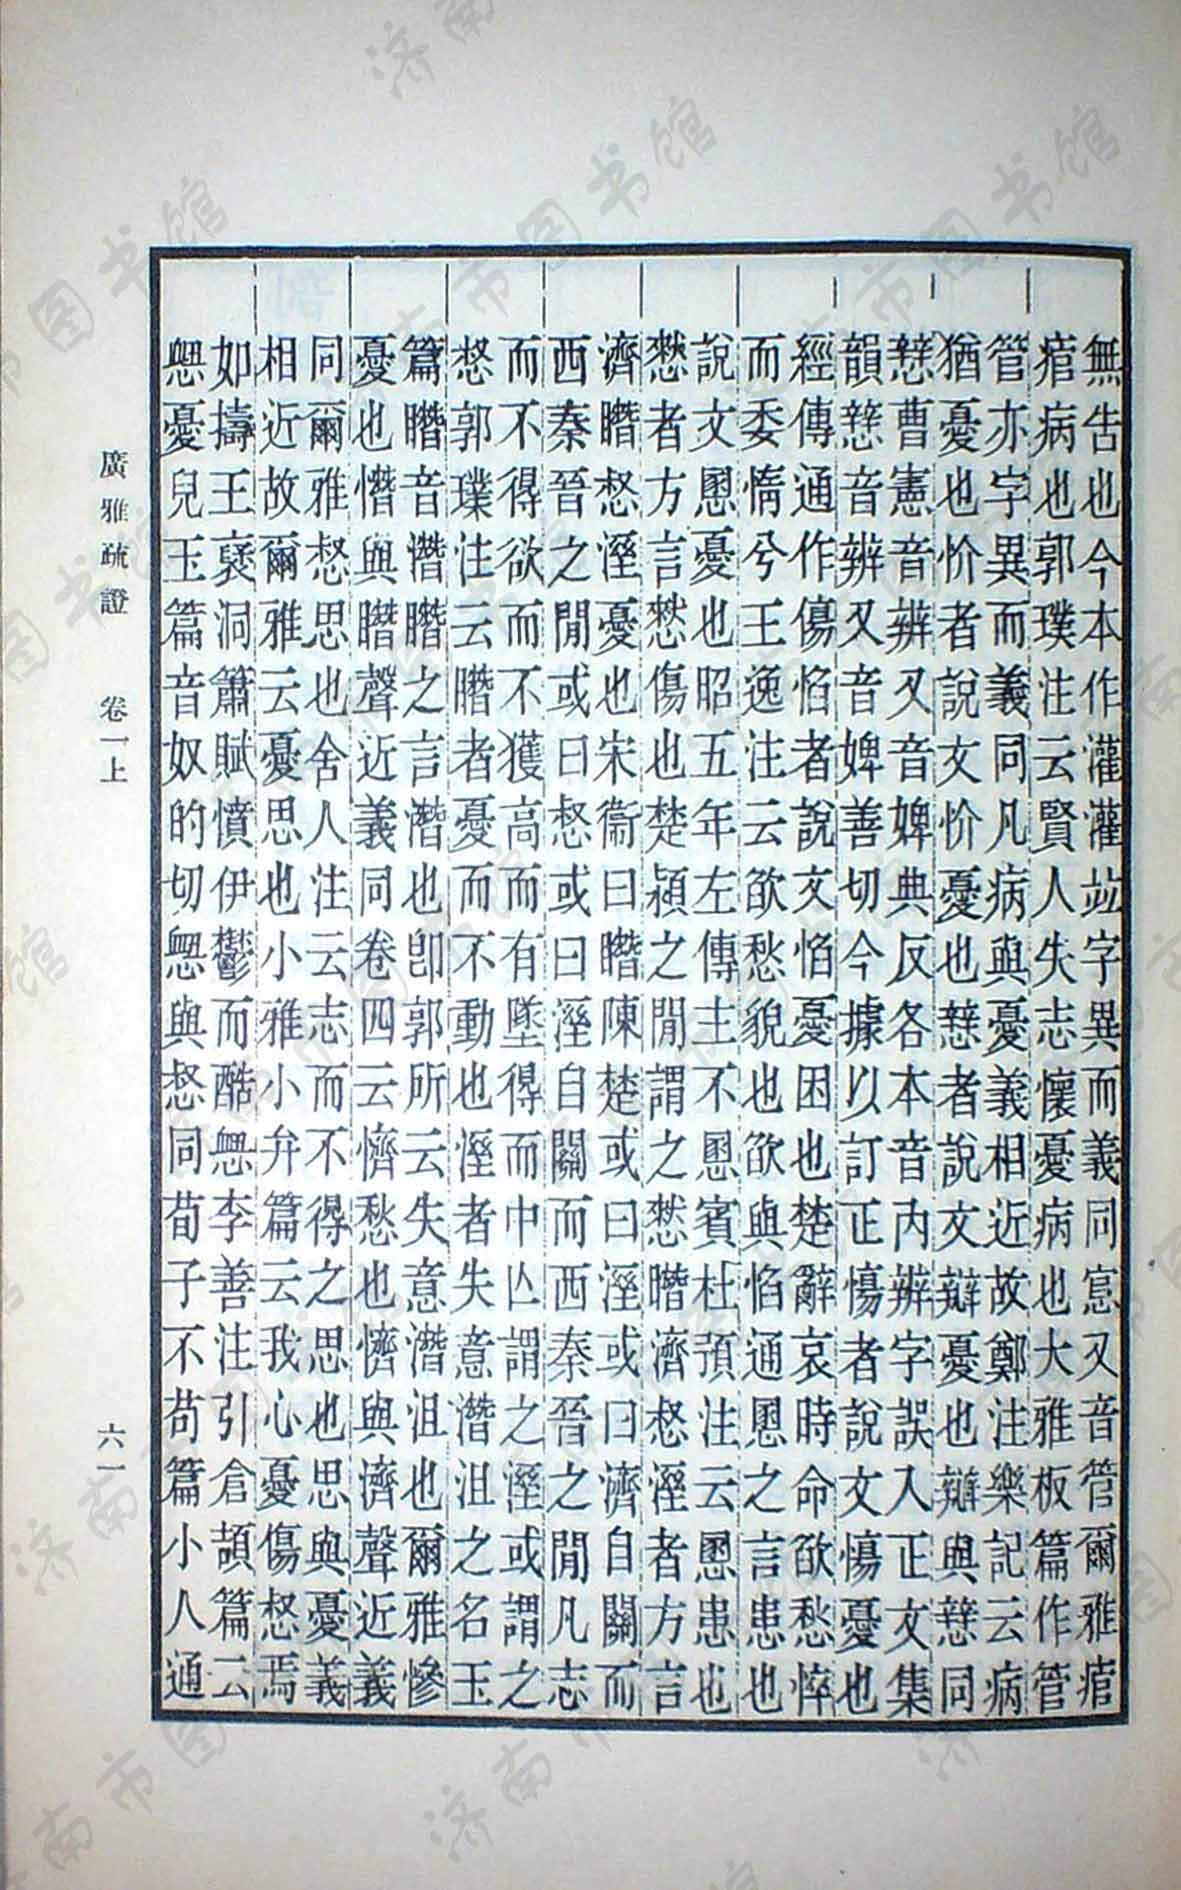 無告也今本作灌灌竝字異而義同悹又音管爾雅痯
痯病也郭璞注云賢人失志懷憂病也大雅板篇作管
管亦字異而義同凡病與憂義相近故鄭注樂記云病
猶憂也忦者說文忦憂也㦚者說文憂也與㦚同
㦚曹憲音辨又音婢典反各本音内辨字誤入正文集
韻㦚音辨又音婢善切今據以訂正慯者說文慯憂也
經傳通作傷惂者說文惂憂困也楚辭哀時命欿愁悴
而委惰兮王逸注云欿愁貌也欿與惂通慁之言患也
說文慁憂也昭五年左傳主不慁賓杜預注云慁患也
憖者方言憖傷也楚潁之閒謂之憖濟惄溼者方言
濟惄溼憂也宋衞曰陳楚或曰溼或曰濟自關而
西秦晉之閒或曰惄或曰溼自關而西秦晉之閒凡志
而不得欲而不獲高而有墜得而中亾謂之溼或謂之
惄郭璞注云者憂而不動也溼者失意潛沮之名玉
篇音潛之言潛也卽郭所云失意潛沮也爾雅慘
憂也憯與聲近義同卷四云懠愁也懠與濟聲近義
同爾雅惄思也舍人注云志而不得之思也思與憂義
相近故爾雅云憂思也小雅小弁篇云我心憂傷惄焉
如擣王襃洞簫賦憤伊鬱而酷㥾李善注引倉頡篇云
㥾憂皃玉篇音奴的切㥾與惄同荀子不苟篇小人通
廣雅疏證 卷一上
六一